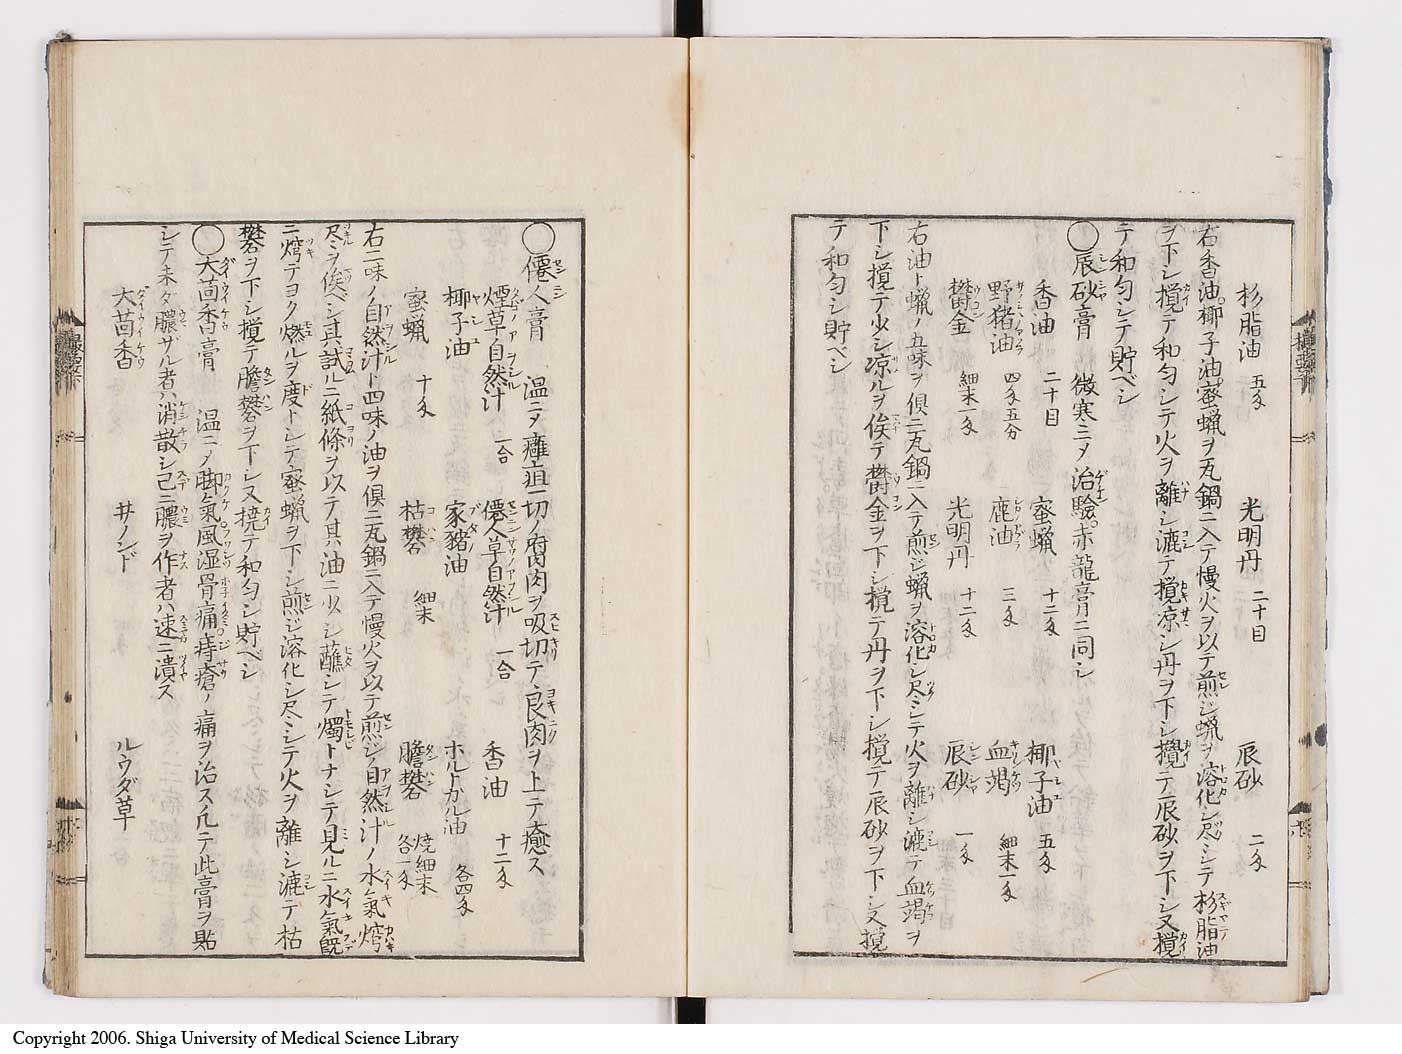 杉脂油 五匁 光明丹 二十目 辰砂 二匁
右香油椰子油蜜蝋ヲ瓦鍋ニ入テ慢火ヲ以テ煎ジ蝋ヲ溶化シ尽シテ杉脂油
ヲ下シ攪テ和匀シテ火ヲ離シ漉テ攪凉シ丹ヲ下シ攪テ辰砂ヲ下シ又攪
テ和匀シテ貯ベシ
◯辰砂膏 微寒ニメ治驗赤龍膏ニ同シ
香油 二十目 蜜蝋 十二匁 椰子油 五匁
野猪油 四匁五分 鹿油 三匁 血竭 細末一匁
欝金 細末一匁 光明丹 十二匁 辰砂 一匁
右油ト蝋ノ五味ヲ倶ニ瓦鍋ニ入テ煎ジ蝋ヲ溶化シ尽シテ火ヲ離シ漉テ血竭ヲ
下シ攪テ少シ凉ルヲ俟テ欝金ヲ下シ攪テ丹ヲ下シ攪テ辰砂ヲ下シ又攪
テ和匀シ貯ベシ
◯僊人膏 温ニメ癰疽一切ノ腐肉ヲ吸切テ良肉ヲ上テ癒ス
煙草自然汁 一合 僊人草自然汁 一合 香油 十二匁
椰子油 家豬油 ホルトガル油 各四匁
蜜蝋 十匁 枯礬 細末 膽礬 焼細末 各一匁
右二味ノ自然汁ト四味ノ油ヲ倶ニ瓦鍋ニ入テ慢火ヲ以テ煎ジ自然汁ノ水氣焅
尽ヲ俟ベシ其試ルニ紙條ヲ以テ其油ニ少シ蘸シテ燭トナシテ見ルニ水氣既
ニ焅テヨク燃ルヲ度トシテ蜜蝋ヲ下シ煎ジ溶化シ尽シテ火ヲ離シ漉テ枯
礬ヲ下シ攪テ膽礬ヲ下シ又撓テ和匀シ貯ベシ
◯大茴香膏 温ニメ脚氣風湿骨痛痔瘡ノ痛ヲ治ス凢テ此膏ヲ貼
シテ未タ膿ザル者ハ消散シ已ニ膿ヲ作者ハ速ニ潰ス
大茴香 井ノンド ルウダ草
Copyright 2006. Shiga University of Medical Science Library